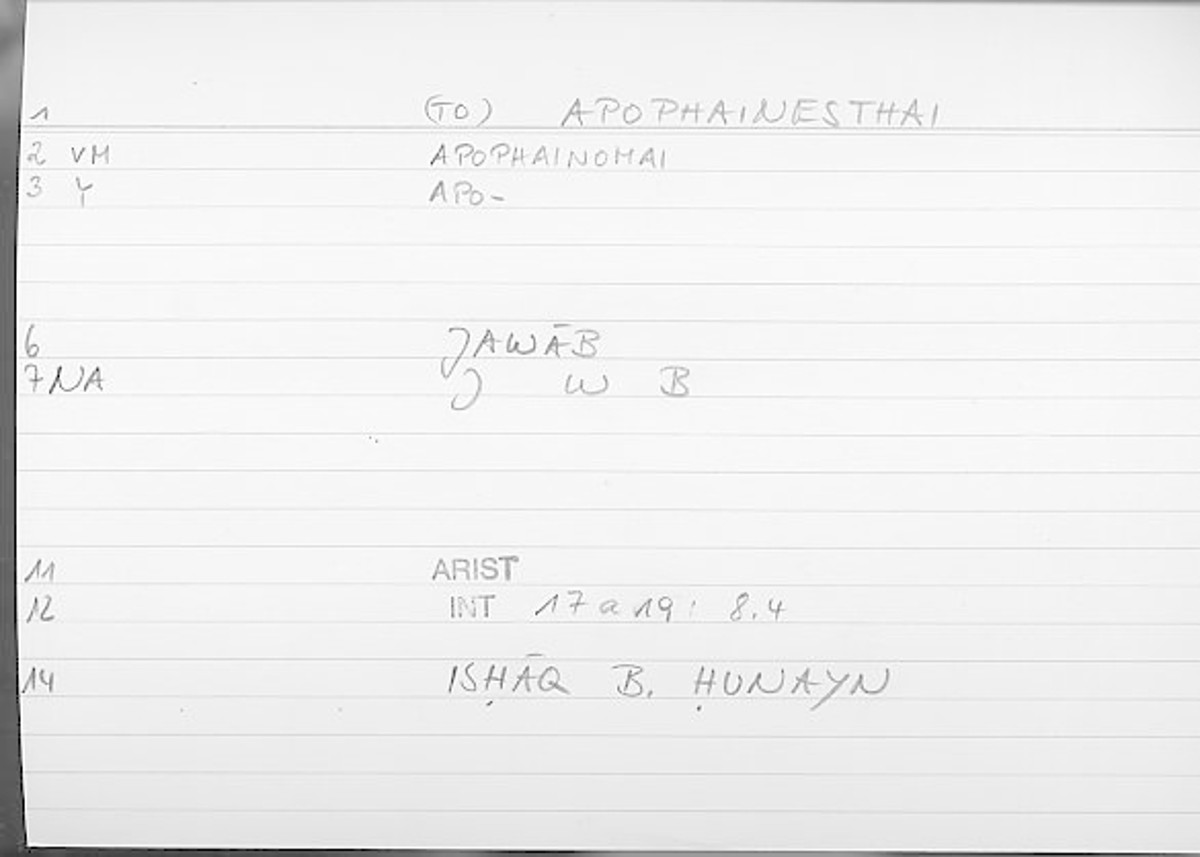 1 (TO) APOPHAINESTHAI
2 VM APOPHAINOMAI
3 Y APO-
6 JAWĀB
7 NA J W B
11 ARIST
12 INT 17a19: 8.4
14 ISḤĀQ B. ḤUNAYN